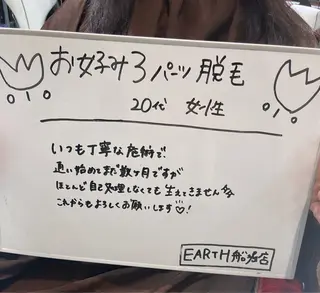 お好み3パーツ脱毛
20代 女性
いつも丁寧な施術で、
通い始めてまだ数ヶ月ですが
ほとんど自己処理しなくても生えてきません
これからもよろしくお願いします♡!
EARTH 船堀店